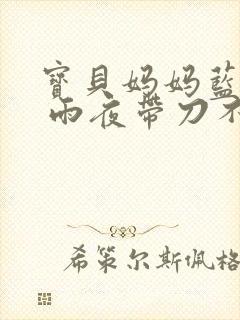 寶貝妈妈藍
雨夜帶刀不
希策尔斯佩格